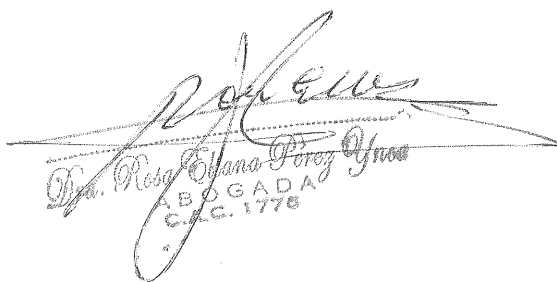 Dra. Rosa Eliana Pérez Ynoa
ABOGADA
C.A.C. 1778